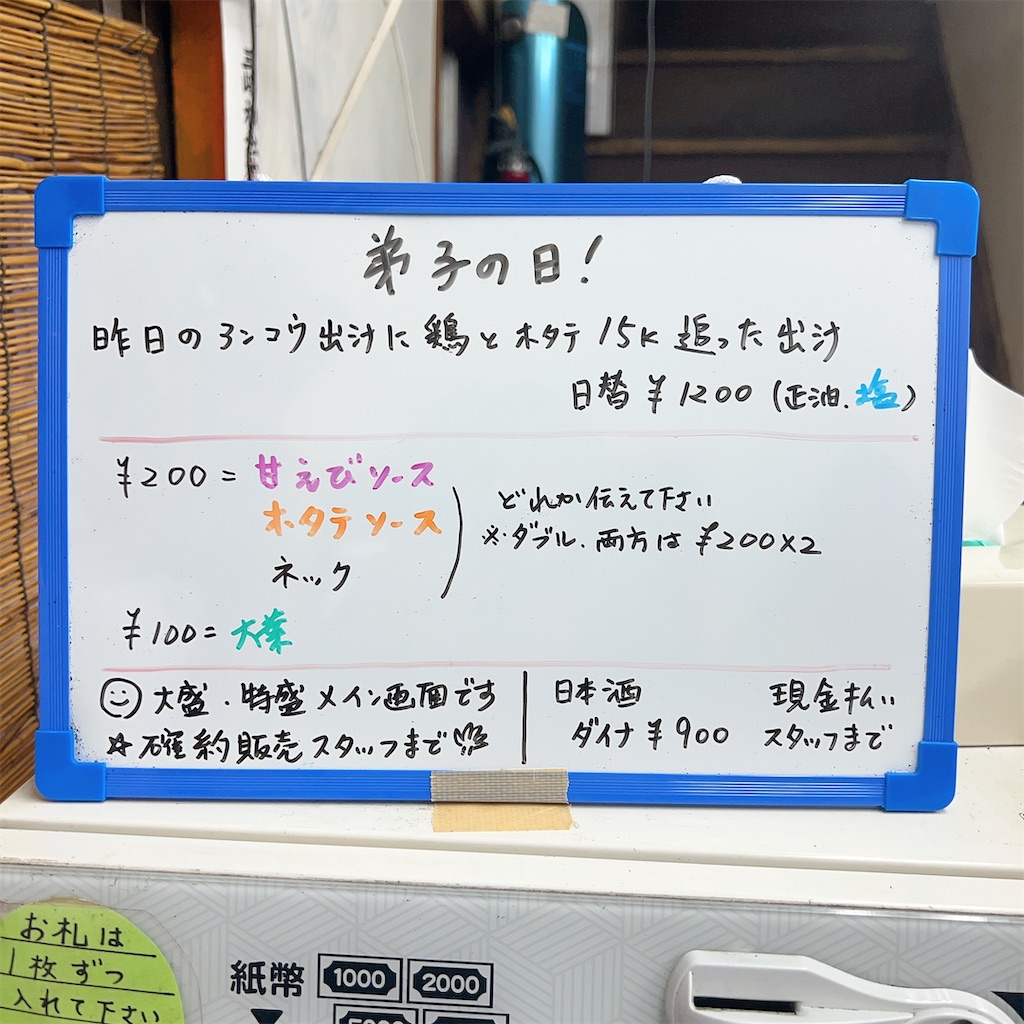 弟子の日!
昨日のアンコウ出汁に鶏とホタテ15K追った出汁
日替¥1200(正油.塩)
¥200=甘えびソース
ホタテソース
ネック
どれか伝えて下さい
※ダブル.両方は¥200×2
¥100=大葉
大盛.特盛メイン画面です
☆確約販売スタッフまで
日本酒 現金払い
ダイナ¥900 スタッフまで
お札は
1枚ずつ
入れて下さい
紙幣 1000 2000